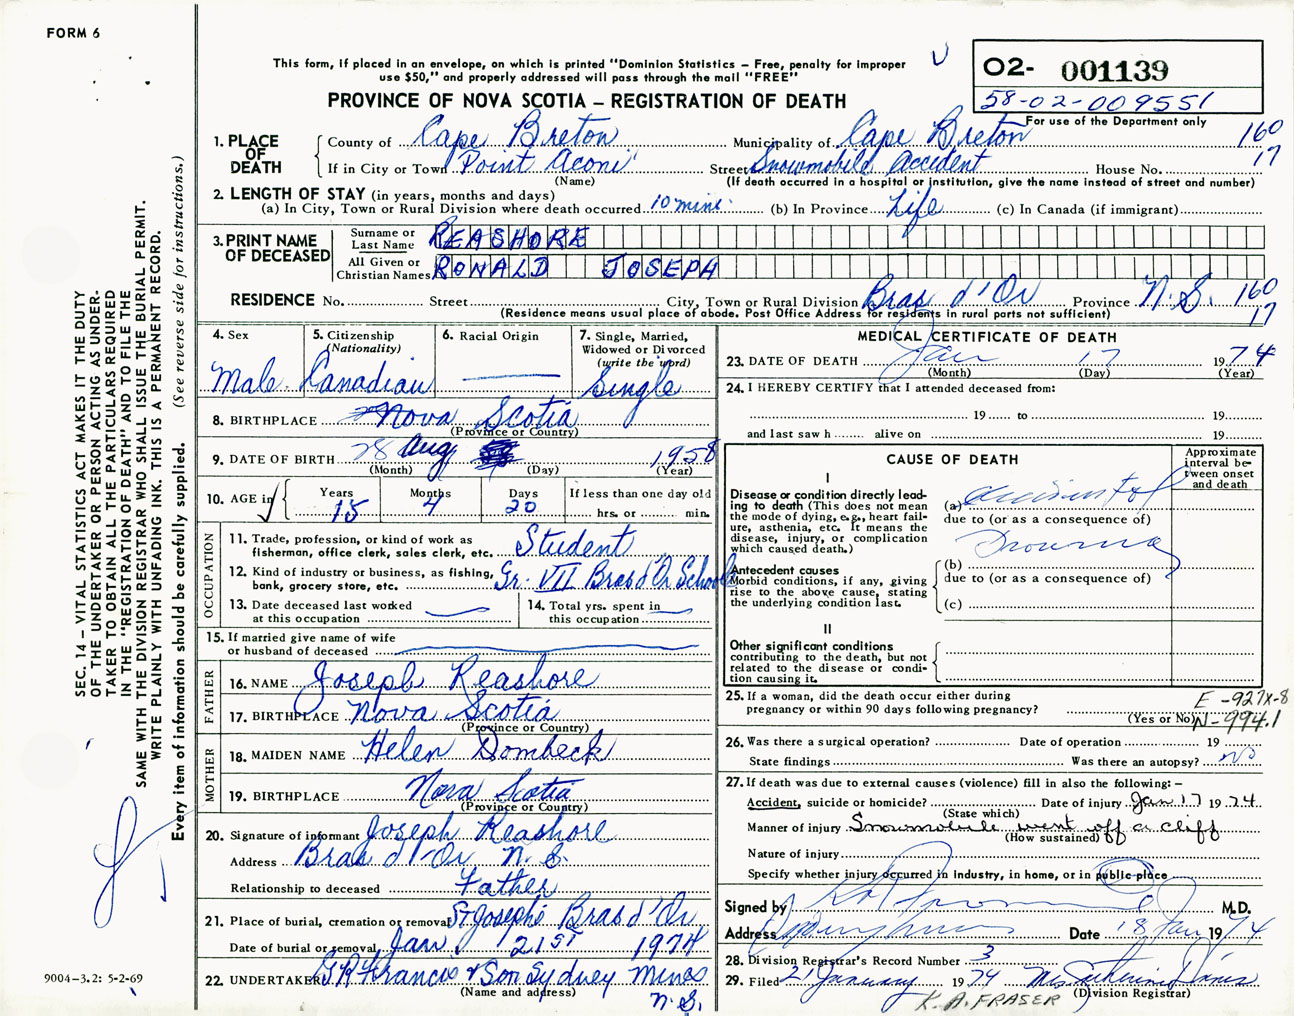 FORM 6
This form, if placed in an envelope, on which is printed "Dominion Statistics – Free, penalty for improper
use $50," and properly addressed will pass through the mail "FREE"
O2- 001139
58-02-009551
For use of the Department only
PROVINCE OF NOVA SCOTIA – REGISTRATION OF DEATH
1. PLACE OF DEATH
County of Cape Breton Municipality of Cape Breton 160
If in City or Town Point Aconi Street Snowmobile Accident House No. 17
(Name) (If death occurred in a hospital or institution, give the name instead of street and number)
2. LENGTH OF STAY (in years, months and days)
(a) In City, Town or Rural Division where death occurred 10 mins. (b) In Province Life (c) In Canada (if immigrant)
3. PRINT NAME OF DECEASED
Surname or Last Name REASHORE
All Given or Christian Names RONALD JOSEPH
RESIDENCE No. Street City, Town or Rural Division Bras d'Or Province N.S. 160
(Residence means usual place of abode. Post Office Address for residents in rural parts not sufficient) 17
4. Sex Male
5. Citizenship (Nationality) Canadian
6. Racial Origin
7. Single, Married, Widowed or Divorced (write the word) Single
8. BIRTHPLACE Nova Scotia
(Province or Country)
9. DATE OF BIRTH 28 Aug 1958
(Month) (Day) (Year)
10. AGE in Years 15 Months 4 Days 20 If less than one day old
hrs. or min.
OCCUPATION
11. Trade, profession, or kind of work as
fisherman, office clerk, sales clerk, etc. Student
12. Kind of industry or business, as fishing,
bank, grocery store, etc. Gr. VII Bras d'Or School
13. Date deceased last worked
at this occupation
14. Total yrs. spent in
this occupation
15. If married give name of wife
or husband of deceased
FATHER
16. NAME Joseph Reashore
17. BIRTHPLACE Nova Scotia
(Province or Country)
MOTHER
18. MAIDEN NAME Helen Dombeck
19. BIRTHPLACE Nova Scotia
(Province or Country)
20. Signature of informant Joseph Reashore
Address Bras d'Or N.S.
Relationship to deceased Father
21. Place of burial, cremation or removal St Josephs Bras d'Or
Date of burial or removal Jan. 21st 1974
22. UNDERTAKER Francis & Son Sydney Mines
(Name and address) N.S.
MEDICAL CERTIFICATE OF DEATH
23. DATE OF DEATH Jan 17 1974
(Month) (Day) (Year)
24. I HEREBY CERTIFY that I attended deceased from:
19 to 19
and last saw h alive on 19
CAUSE OF DEATH
Approximate interval between onset and death
I
Disease or condition directly lead-
ing to death (This does not mean
the mode of dying, e.g., heart fail-
ure, asthenia, etc. It means the
disease, injury, or complication
which caused death.)
(a) accidental
due to (or as a consequence of)
Drowning
Antecedent causes
Morbid conditions, if any, giving
rise to the above cause, stating
the underlying condition last.
(b)
due to (or as a consequence of)
(c)
II
Other significant conditions
contributing to the death, but not
related to the disease or condi-
tion causing it.
25. If a woman, did the death occur either during
pregnancy or within 90 days following pregnancy?
(Yes or No)
E-927X-8
N-994.1
26. Was there a surgical operation? Date of operation 19
State findings Was there an autopsy? No
27. If death was due to external causes (violence) fill in also the following:–
Accident, suicide or homicide? Date of injury Jan 17 1974
(State which)
Manner of injury Snowmobile went off a cliff
(How sustained)
Nature of injury
Specify whether injury occurred in industry, in home, or in public place
Signed by M.D.
Address Date 18 Jan 1974
28. Division Registrar's Record Number 3
29. Filed 21 January 1974 Davis
(Division Registrar)
K. A. FRASER
SEC. 14 – VITAL STATISTICS ACT MAKES IT THE DUTY
OF THE UNDERTAKER OR PERSON ACTING AS UNDER-
TAKER TO OBTAIN ALL THE PARTICULARS REQUIRED
IN THE "REGISTRATION OF DEATH" AND TO FILE THE
SAME WITH THE DIVISION REGISTRAR WHO SHALL ISSUE THE BURIAL PERMIT.
WRITE PLAINLY WITH UNFADING INK. THIS IS A PERMANENT RECORD.
Every item of information should be carefully supplied. (See reverse side for instructions.)
9004-3.2: 5-2-69